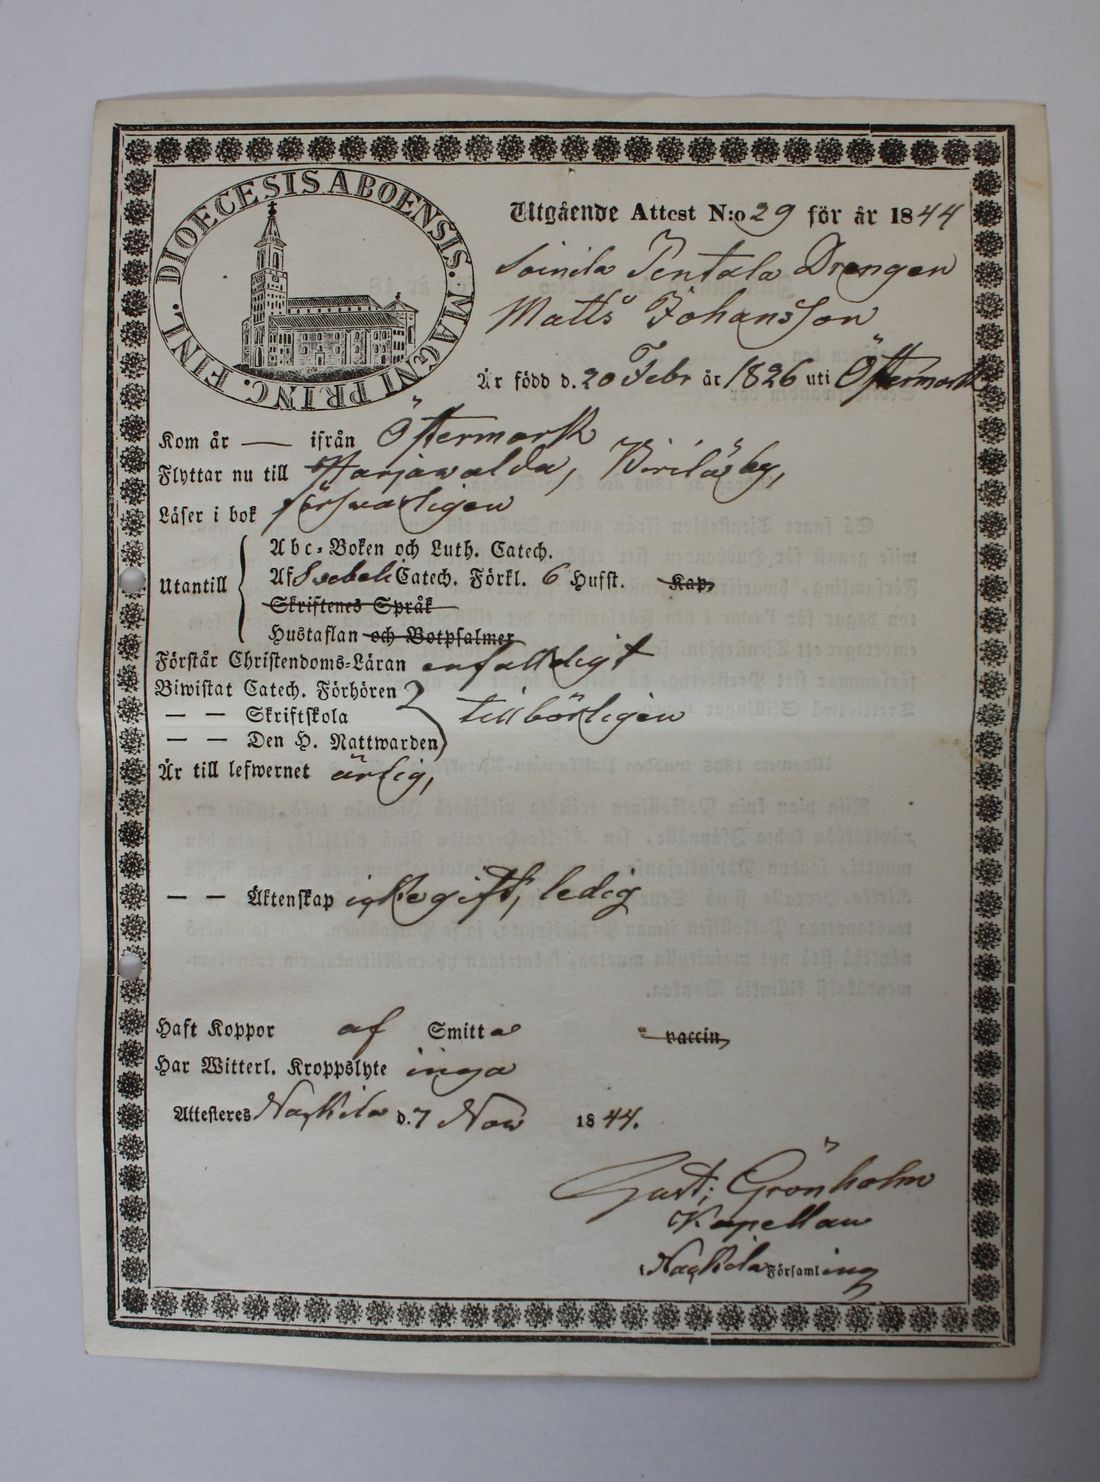 DIOECESIS ABOENSIS. MAGNI PRINC. FINL.
Utgående Attest N:o 29 för år 1844
Soinila Pentala Drengen
Matts Johansson
Är född d. 20 Febr år 1826 uti Östermark
Kom år — ifrån Östermark
Flyttar nu till Harjawalda,
Läser i bok försvarligen
Abc-Boken och Luth. Catech.
Utantill
Af Svebeli Catech. Förkl. 6 Hufst. Kap,
Skriftenes Språk
Hustaflan och Botpsalmer
Förstår Christendoms-Läran enfalldigt
Biwistat Catech. Förhören
— — Skriftskola tillbörligen
— — Den H. Nattwarden
Är till lefwernet ärlig,
— — Äktenskap icke gift, ledig
Haft Koppor af Smitta vaccin,
Har Witterl. Kroppslyte inga
Attesteres Nackila d. 7 Nov 1844.
Gust: Grönholm
Kapellan
i Nackila Församling